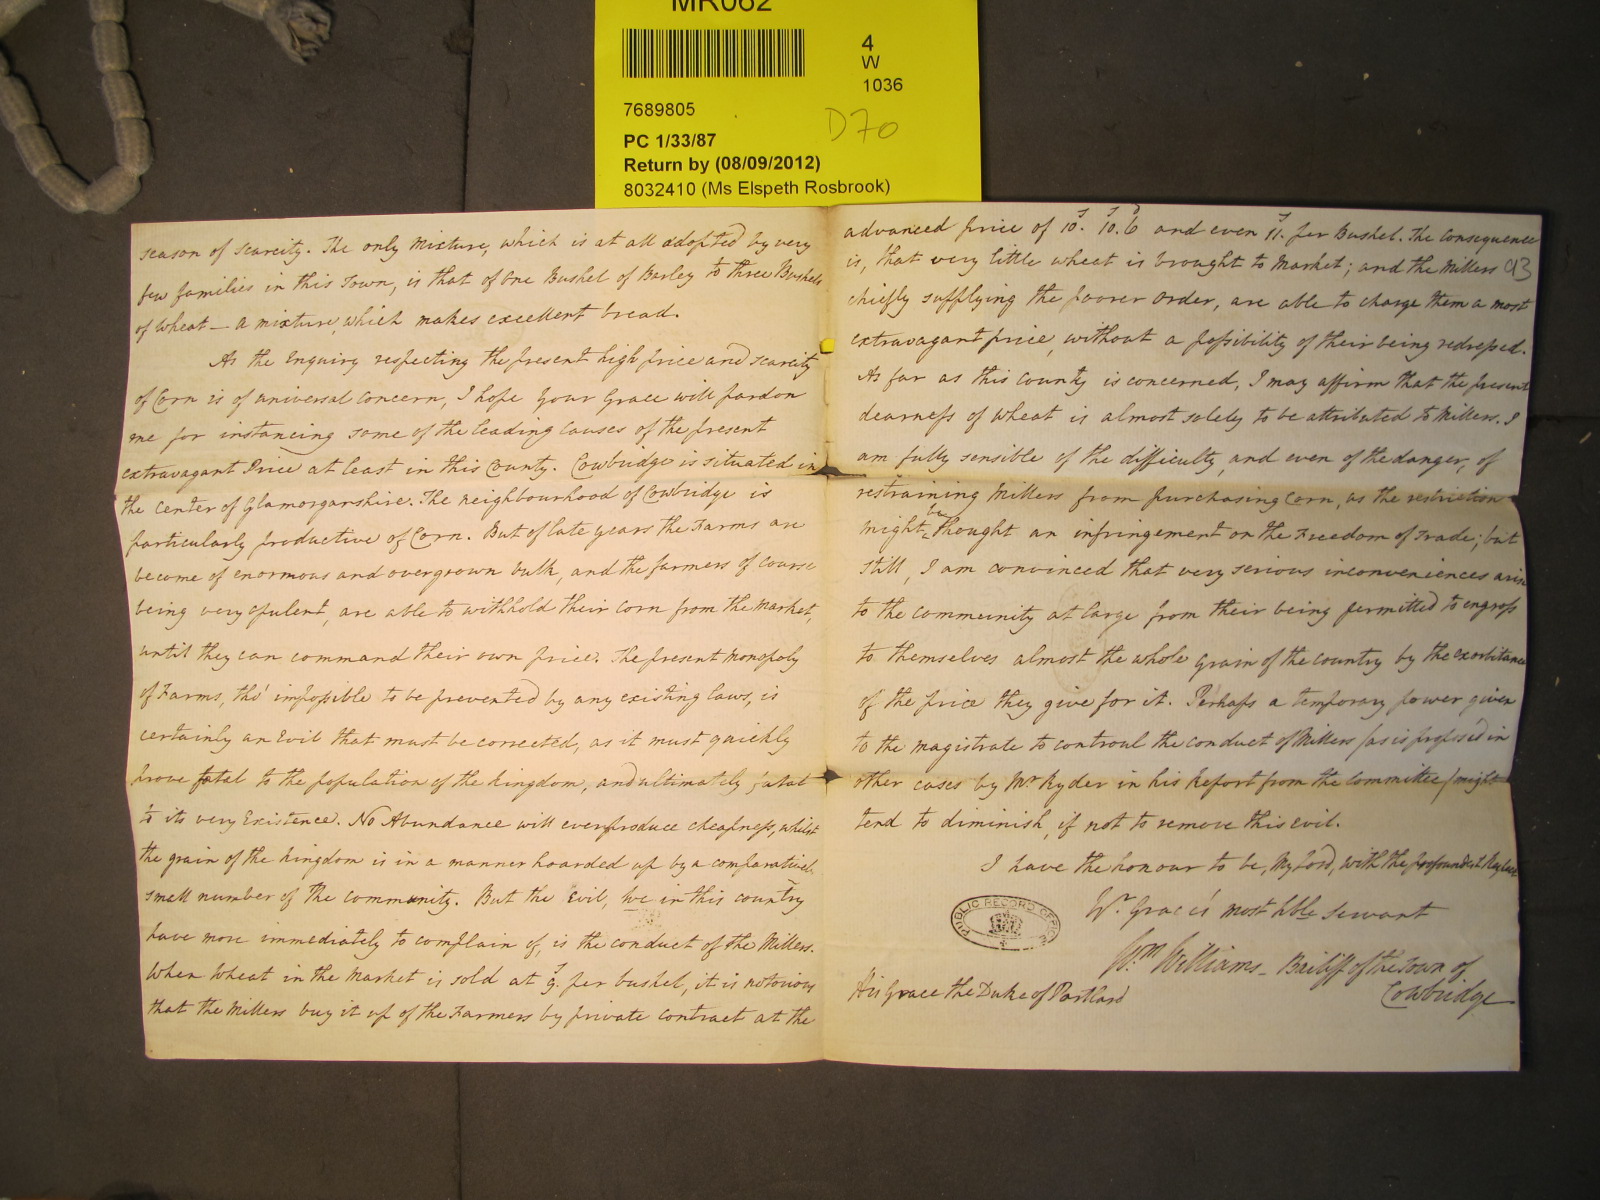 MR062
4
W
1036
7689805
D70
PC 1/33/87
Return by (08/09/2012)
8032410 (Ms Elspeth Rosbrook)
season of scarcity. The only mixture, which is at all adopted by very
few families in this Town, is that of One Bushel of Barley to three Bushels
of Wheat — a mixture, which makes excellent bread.
As the Enquiry respecting the present high price and scarcity
of Corn is of universal concern, I hope Your Grace will pardon
me for instancing some of the leading causes of the present
extravagant Price at least in this County. Cowbridge is situated in
the center of Glamorganshire. The neighbourhood of Cowbridge is
particularly productive of Corn. But of late years the Farms are
become of enormous and overgrown bulk, and the farmers of course
being very opulent, are able to withhold their corn from the market,
until they can command their own price. The present Monopoly
of Farms, tho' impossible to be prevented by any existing laws, is
certainly an Evil that must be corrected, as it must quickly
prove fatal to the population of the kingdom, and ultimately fatal
to its very Existence. No Abundance will ever produce cheapness, whilst
the grain of the kingdom is in a manner hoarded up by a comparatively
small number of the community. But the Evil, we in this country
have more immediately to complain of, is the conduct of the Millers.
When Wheat in the Market is sold at 9s. per bushel, it is notorious
that the Millers buy it up of the Farmers by private contract at the
advanced price of 10s. 10s.6d and even 11s. per Bushel. The consequence
is, that very little wheat is brought to Market; and the Millers
93
chiefly supplying the poorer order, are able to charge them a most
extravagant price, without a possibility of their being redressed.
As far as this County is concerned, I may affirm that the present
dearness of wheat is almost solely to be attributed to Millers. I
am fully sensible of the difficulty, and even of the danger, of
restraining Millers from purchasing Corn, as the restriction
might be thought an infringement on the Freedom of Trade; but
still, I am convinced that very serious inconveniences arise
to the community at large from their being permitted to engross
to themselves almost the whole grain of the country by the exorbitance
of the price they give for it. Perhaps a temporary power given
to the magistrate to controul the conduct of Millers (as is propos'd in
other cases by Mr. Ryder in his Report from the Committee) might
tend to diminish, if not to remove this evil.
I have the honour to be, My Lord, with the profoundest Respect
Yr. Grace's most hble Servant
Wm. Williams - Bailiff of the Town of
Cowbridge
His Grace the Duke of Portland
PUBLIC RECORD OFFICE